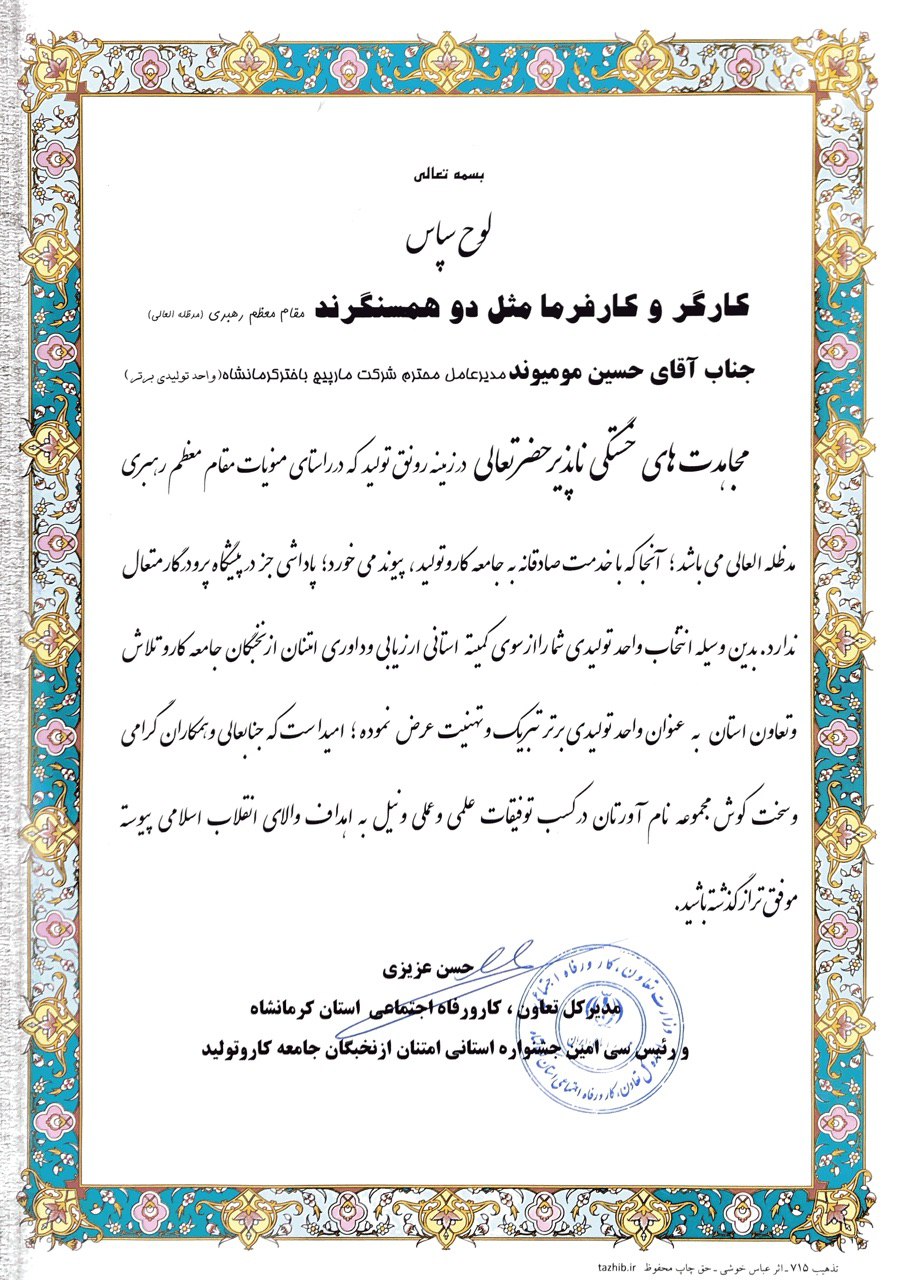 بسمه تعالی
لوح سپاس
کارگر و کارفرما مثل دو همسنگرند مقام معظم رهبری (مدظله العالی)
جناب آقای حسین مومیوند مدیرعامل محترم شرکت مارپیچ باختر کرمانشاه (واحد تولیدی برتر)
مجاهدت های خستگی ناپذیر حضرتعالی در زمینه رونق تولید که در راستای منویات مقام معظم رهبری
مدظله العالی می باشد؛ آنجا که با خدمت صادقانه به جامعه کار و تولید، پیوند می خورد؛ پاداشی جز در پیشگاه پروردگار متعال
ندارد. بدین وسیله انتخاب واحد تولیدی شما را از سوی کمیته استانی ارزیابی و داوری امتنان از نخبگان جامعه کار و تلاش
و تعاون استان به عنوان واحد تولیدی برتر تبریک و تهنیت عرض نموده؛ امید است که جنابعالی و همکاران گرامی
و سخت کوش مجموعه نام آورتان در کسب توفیقات علمی و عملی و نیل به اهداف والای انقلاب اسلامی پیوسته
موفق تر از گذشته باشید.
حسن عزیزی
مدیرکل تعاون، کار و رفاه اجتماعی استان کرمانشاه
و رئیس سی امین جشنواره استانی امتنان از نخبگان جامعه کار و تولید
وزارت تعاون، کار و رفاه اجتماعی
کل تعاون، کار و رفاه اجتماعی استان
تذهیب ۷۱۵ ـ اثر عباس خوشی ـ حق چاپ محفوظ tazhib.ir